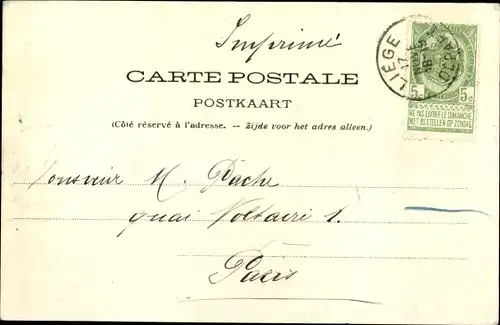 Imprimé
CARTE POSTALE
POSTKAART
(Côté réservé à l'adresse. -- Zijde voor het adres alleen.)
LIÉGE
5 c 5 c
NE PAS LIVRER LE DIMANCHE
NIET BESTELLEN OP ZONDAG
Monsieur M. Pache
quai Voltaire 1.
Paris